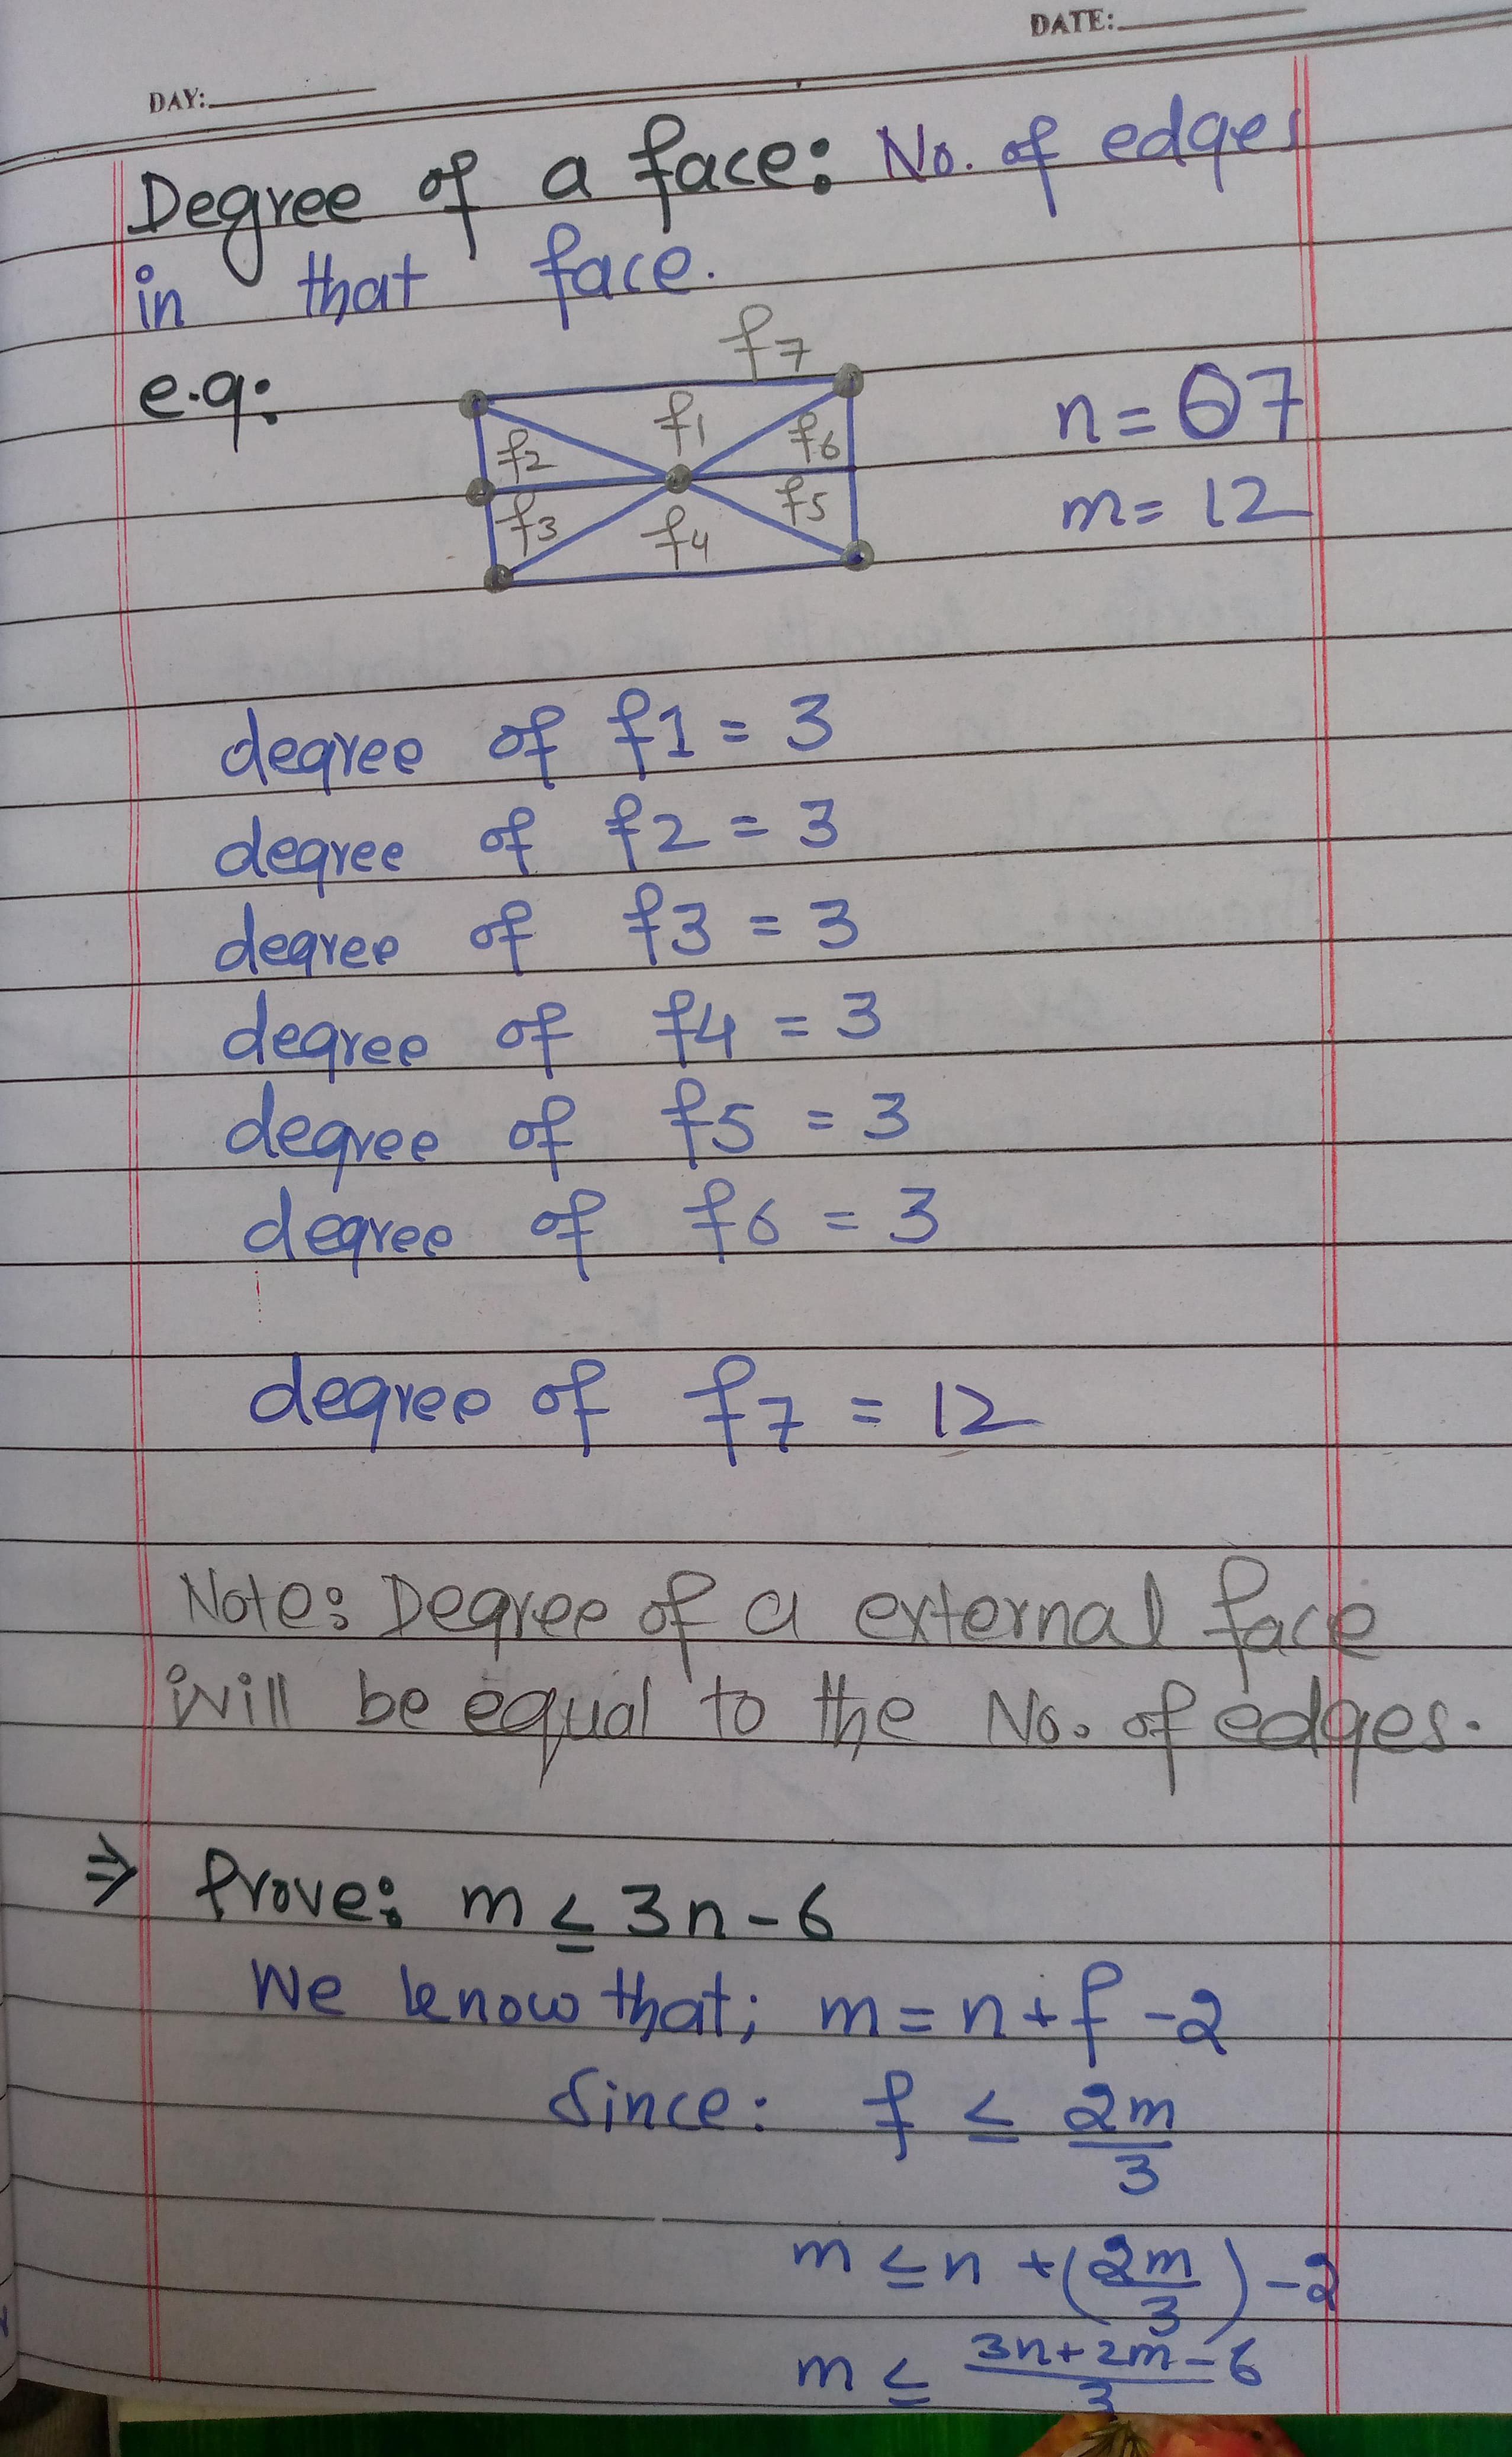 DATE:
DAY:
Degree of a face: No. of edges
in that face.
e.g:
f7
f1
f2
f6
f3
f4
f5
n = 07
m = 12
degree of f1 = 3
degree of f2 = 3
degree of f3 = 3
degree of f4 = 3
degree of f5 = 3
degree of f6 = 3
degree of f7 = 12
Note: Degree of a external face
will be equal to the No. of edges.
⇒ Prove: m ≤ 3n - 6
We know that; m = n + f - 2
Since: f ≤ 2m/3
m ≤ n + (2m/3) - 2
m ≤ 3n + 2m - 6/3